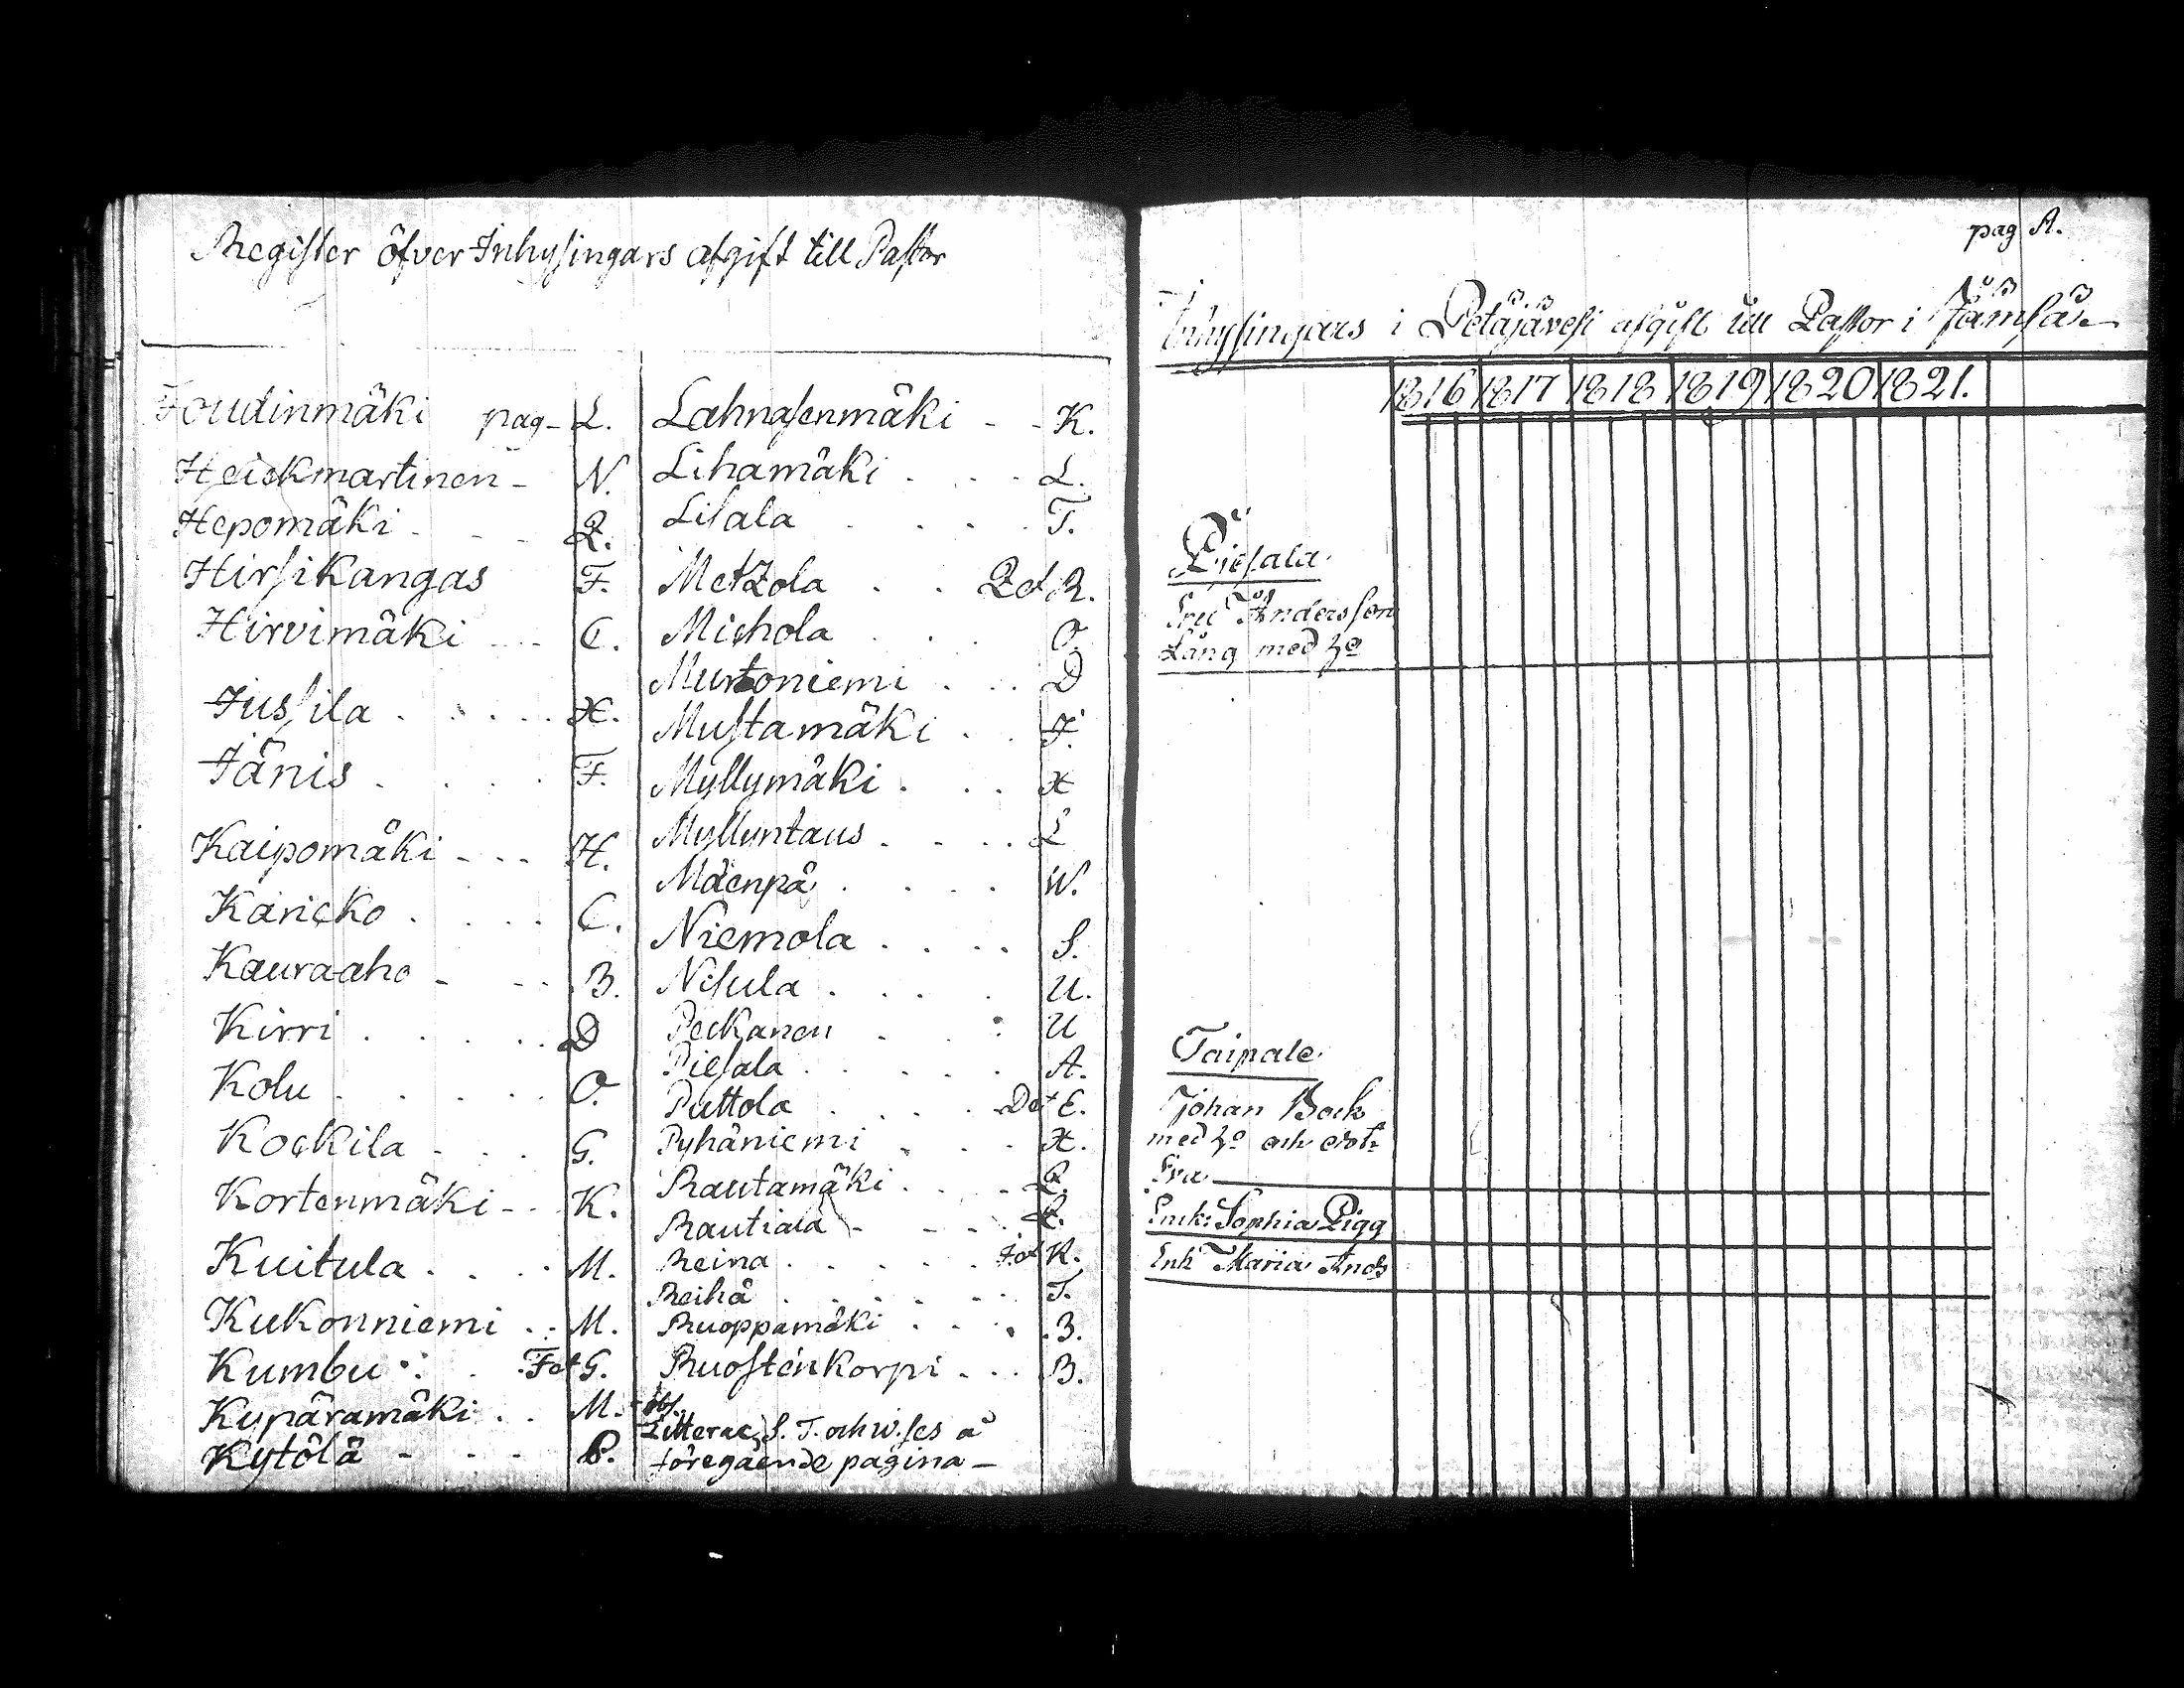 Register öfver Inhysingars afgift till Pastor
Joudinmäki pag L.
Heickmartinen N.
Hepomäki Q.
Hirsikangas F.
Hirvimäki C.
Jussila X.
Jänis F.
Kaipomäki H.
Karicko C.
Kauraaho B.
Kirri D
Kolu O.
Kockila G.
Kortenmäki K.
Kuitula M.
Kukonniemi M.
Kumbu F et G.
Kupäramäki M.
Kytölä P.
Lahnasenmäki K.
Lihamäki L.
Lisala T.
Metzola Q et R.
Michola O.
Murtoniemi D
Mustamäki F.
Myllymäki X
Myllyntaus L
Mäenpä W.
Niemola S.
Nisula U.
Peckanen U
Piesala A.
Puttola D et E.
Pyhäniemi X.
Rautamäki Q.
Rautiala
Reina I et K.
Reihä T.
Ruoppamäki B.
Ruostenkorpi B.
Litterae S. T. och W. ses å
föregående pagina
pag A.
Inhysingars i Petäjävesi afgift till Pastor i Jämsä
1816 1817 1818 1819 1820 1821.
Piesala
Andersson
Lång med h:o
Taipale
Johan Bock
med h:o och dot:r
Eva
Enk: Sophia Pigg
Enk Maria Ands